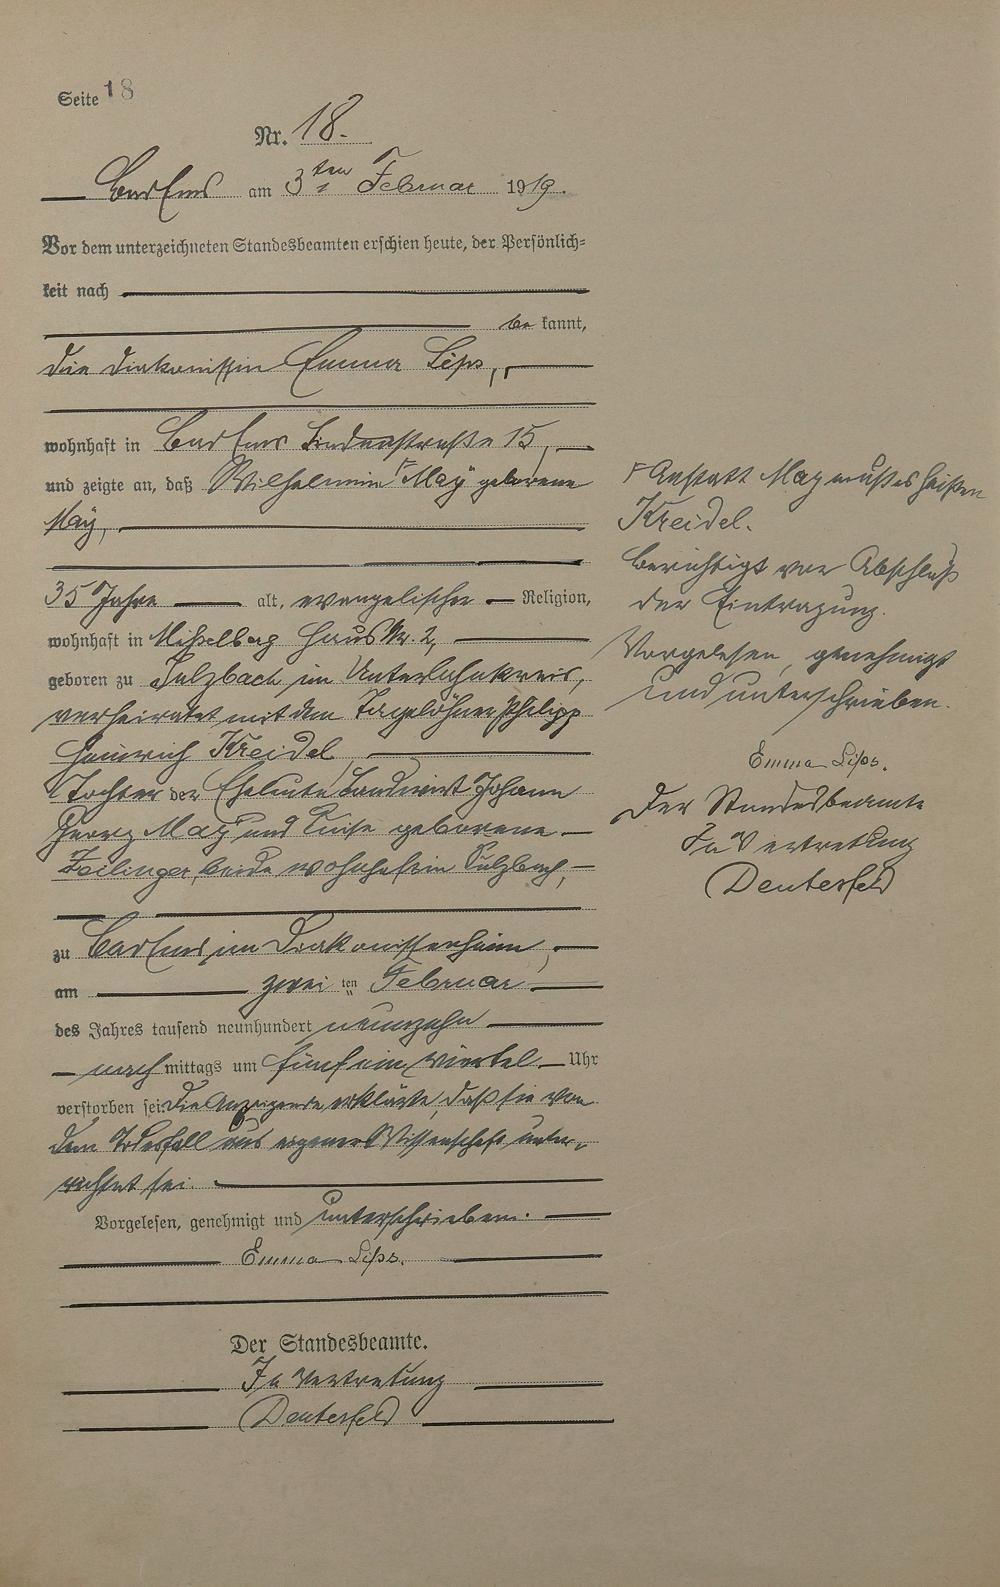 Seite 18
Nr. 18.
Bad Ems am 3ten Februar 1919.
Vor dem unterzeichneten Standesbeamten erschien heute, der Persönlich=
keit nach
be kannt,
die Diakonissin Emma Lips,
wohnhaft in Bad Ems Lindenstraße 15,
und zeigte an, daß Wilhelmine ⌜May geborene
May,
35 Jahre alt, evangelischer Religion,
wohnhaft in Misselberg Haus Nr. 2,
geboren zu Sulzbach im Unterlahnkreis,
verheiratet mit dem Tagelöhner Philipp
Heinrich Kreidel,
Tochter der Eheleute Landwirt Johann
Georg May und Luise geborene
Zeilinger, beide wohnhaft in Sulzbach,
zu Bad Ems, im Diakonissenheim,
am zwei ten Februar
des Jahres tausend neunhundert neunzehn
nach mittags um fünf ein viertel Uhr
verstorben sei. Die Anzeigende erklärte, daß sie von
dem Todesfall aus eigener Wissenschaft unter-
richtet sei.
Vorgelesen, genehmigt und unterschrieben.
Emma Lips.
Der Standesbeamte.
In Vertretung
Deuterfeld
⌜Anstatt May muß es heißen
Kreidel.
Berichtigt vor Abschluß
der Eintragung.
Vorgelesen, genehmigt
und unterschrieben.
Emma Lips.
Der Standesbeamte
In Vertretung
Deuterfeld